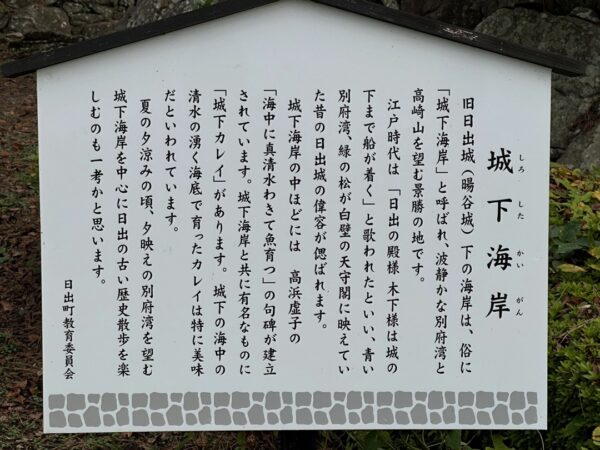 城下海岸
しろ した かい がん
旧日出城（暘谷城）下の海岸は、俗に
「城下海岸」と呼ばれ、波静かな別府湾と
高崎山を望む景勝の地です。
江戸時代は 「日出の殿様 木下様は城の
下まで船が着く」と歌われたといい、青い
別府湾、緑の松が白壁の天守閣に映えてい
た昔の日出城の偉容が偲ばれます。
城下海岸の中ほどには 高浜虚子の
「海中に真清水わきて魚育つ」の句碑が建立
されています。城下海岸と共に有名なものに
「城下カレイ」があります。城下の海中の
清水の湧く海底で育ったカレイは特に美味
だといわれています。
夏の夕涼みの頃、夕映えの別府湾を望む
城下海岸を中心に日出の古い歴史散歩を楽
しむのも一考かと思います。
日出町教育委員会